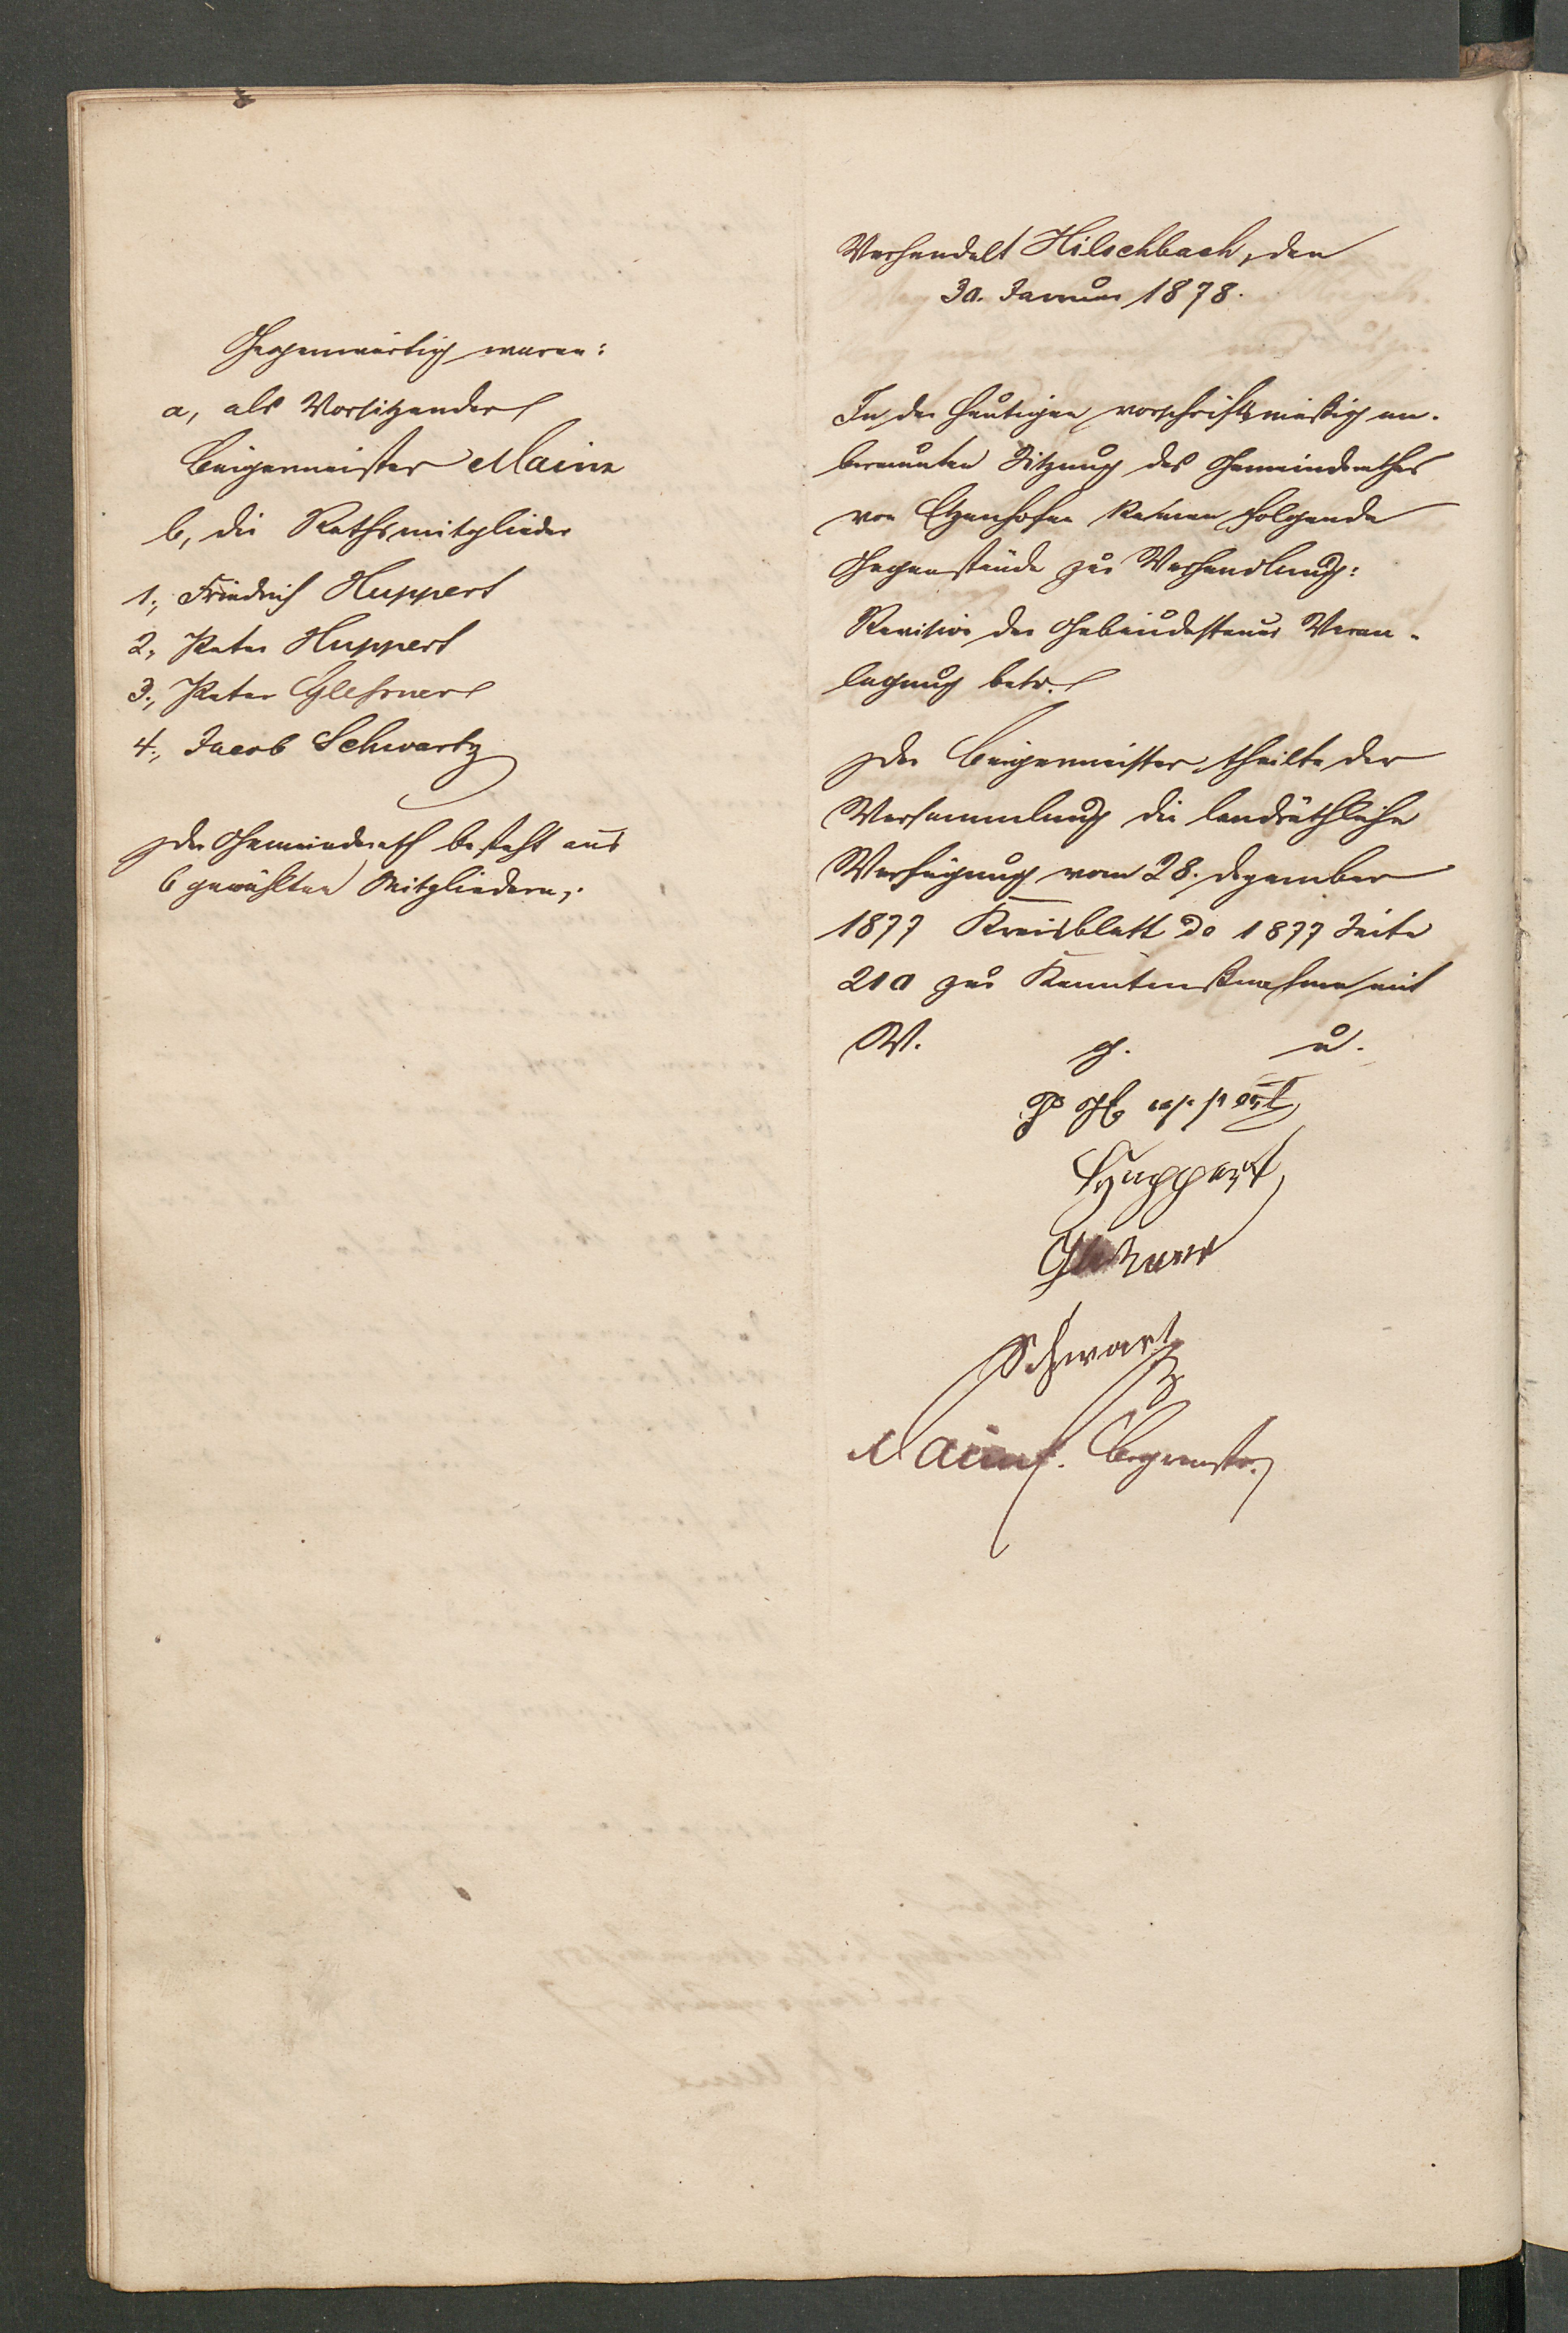 Gegenwärtig waren:
a, als Vorsitzender
Bürgermeister Mainz
b, die Rathsmitglieder
1., Friedrich Huppert
2., Peter Huppert
3., Peter Glessner
4., Jacob Schwartz
Der Gemeinderath besteht aus
6 gewählten Mitgliedern.
Verhandelt Hilschbach, den
30. Januar 1878.
In der heutigen vorschriftsmäßig an-
beraumten Sitzung des Gemeinderathes
von Etzenhofen kamen folgende
Gegenstände zur Verhandlung:
Revision der Gebäudesteuer Veran-
lagung betr.
Der Bürgermeister theilte der
Versammlung die landräthliche
Verfügung vom 28. Dezember
1877 Kreisblatt do 1877 Seite
210 zur Kenntnißnahme mit
V. g. u.
P Huppert
Huppert
Glesner
Schwartz
Mainz. Bgrmstr.